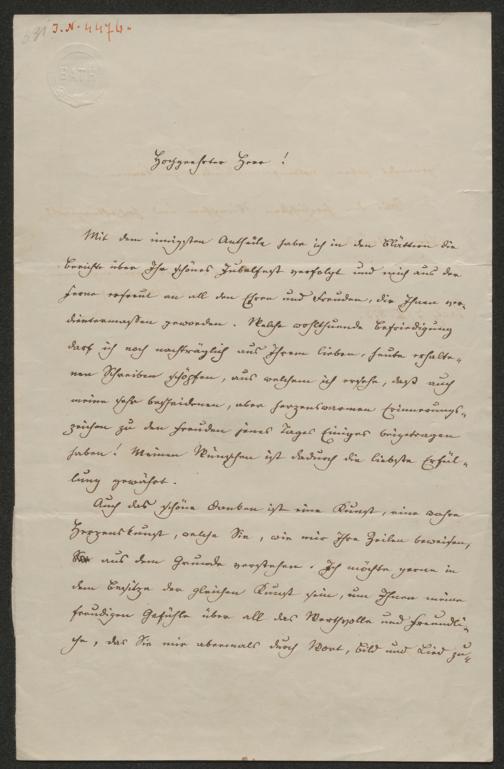 531 I.N. 4474.
BATH
Hochgeehrter Herr!
Mit dem innigsten Antheile habe ich in den Blättern die
Berichte über Ihr schönes Jubelfest verfolgt und mich aus der
Ferne erfreut an all den Ehren und Freuden, die Ihnen ver-
dientermaßen geworden. Welche wohlthuende Befriedigung
darf ich noch nachträglich aus Ihrem lieben, heute erhalte-
nen Schreiben schöpfen, aus welchem ich ersehe, daß auch
meine sehr bescheidenen, aber herzenswarmen Erinnerungs-
zeichen zu den Freuden jenes Tages Einiges beigetragen
haben! Meinen Wünschen ist dadurch die liebste Erfül-
lung gewährt.
Auch das schöne Danken ist eine Kunst, eine wahre
Herzenskunst, welche Sie, wie mir Ihre Zeilen beweisen,
aus dem Grunde verstehen. Ich möchte gerne in
dem Besitze der gleichen Kunst sein, um Ihnen meine
freudigen Gefühle über all das Werthvolle und Freundli-
che, das Sie mir abermals durch Wort, Bild und Lied zu-